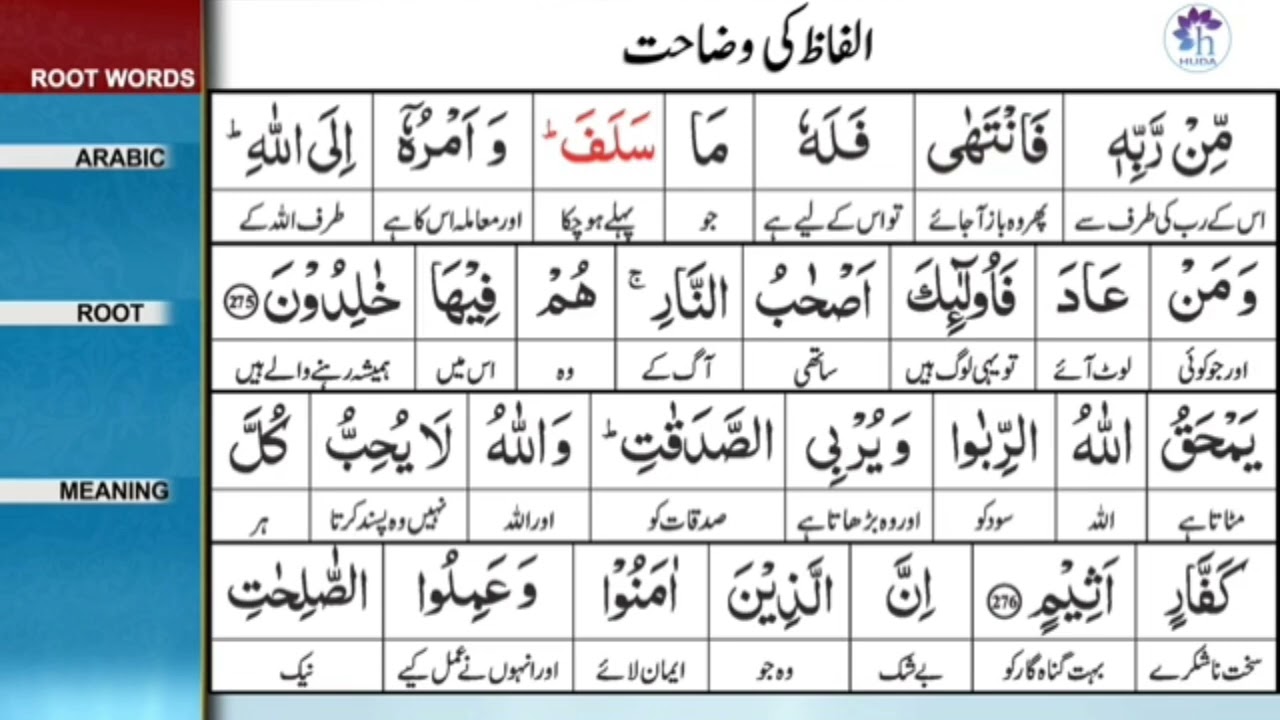 الفاظ کی وضاحت
HUDA
ROOT WORDS
ARABIC
ROOT
MEANING
مِّنْ رَّبِّهٖ فَانْتَهٰى فَلَهٗ مَا سَلَفَ ؕ وَ اَمْرُهٗۤ اِلَى اللّٰهِ ؕ
اس کے رب کی طرف سے پھر وہ باز آجائے تو اس کے لیے ہے جو پہلے ہو چکا اور معاملہ اس کا ہے طرف اللہ کے
وَ مَنْ عَادَ فَاُولٰٓئِكَ اَصْحٰبُ النَّارِ ۚ هُمْ فِيْهَا خٰلِدُوْنَ 275
اور جو کوئی لوٹ آئے تو یہی لوگ ہیں ساتھی آگ کے وہ اس میں ہمیشہ رہنے والے ہیں
يَمْحَقُ اللّٰهُ الرِّبٰوا وَ يُرْبِى الصَّدَقٰتِ ؕ وَ اللّٰهُ لَا يُحِبُّ كُلَّ
مٹاتا ہے اللہ سود کو اور وہ بڑھاتا ہے صدقات کو اور اللہ نہیں وہ پسند کرتا ہر
كَفَّارٍ اَثِيْمٍ 276 اِنَّ الَّذِيْنَ اٰمَنُوْا وَ عَمِلُوا الصّٰلِحٰتِ
سخت ناشکرے بہت گناہ گار کو بے شک وہ جو ایمان لائے اور انہوں نے عمل کیے نیک